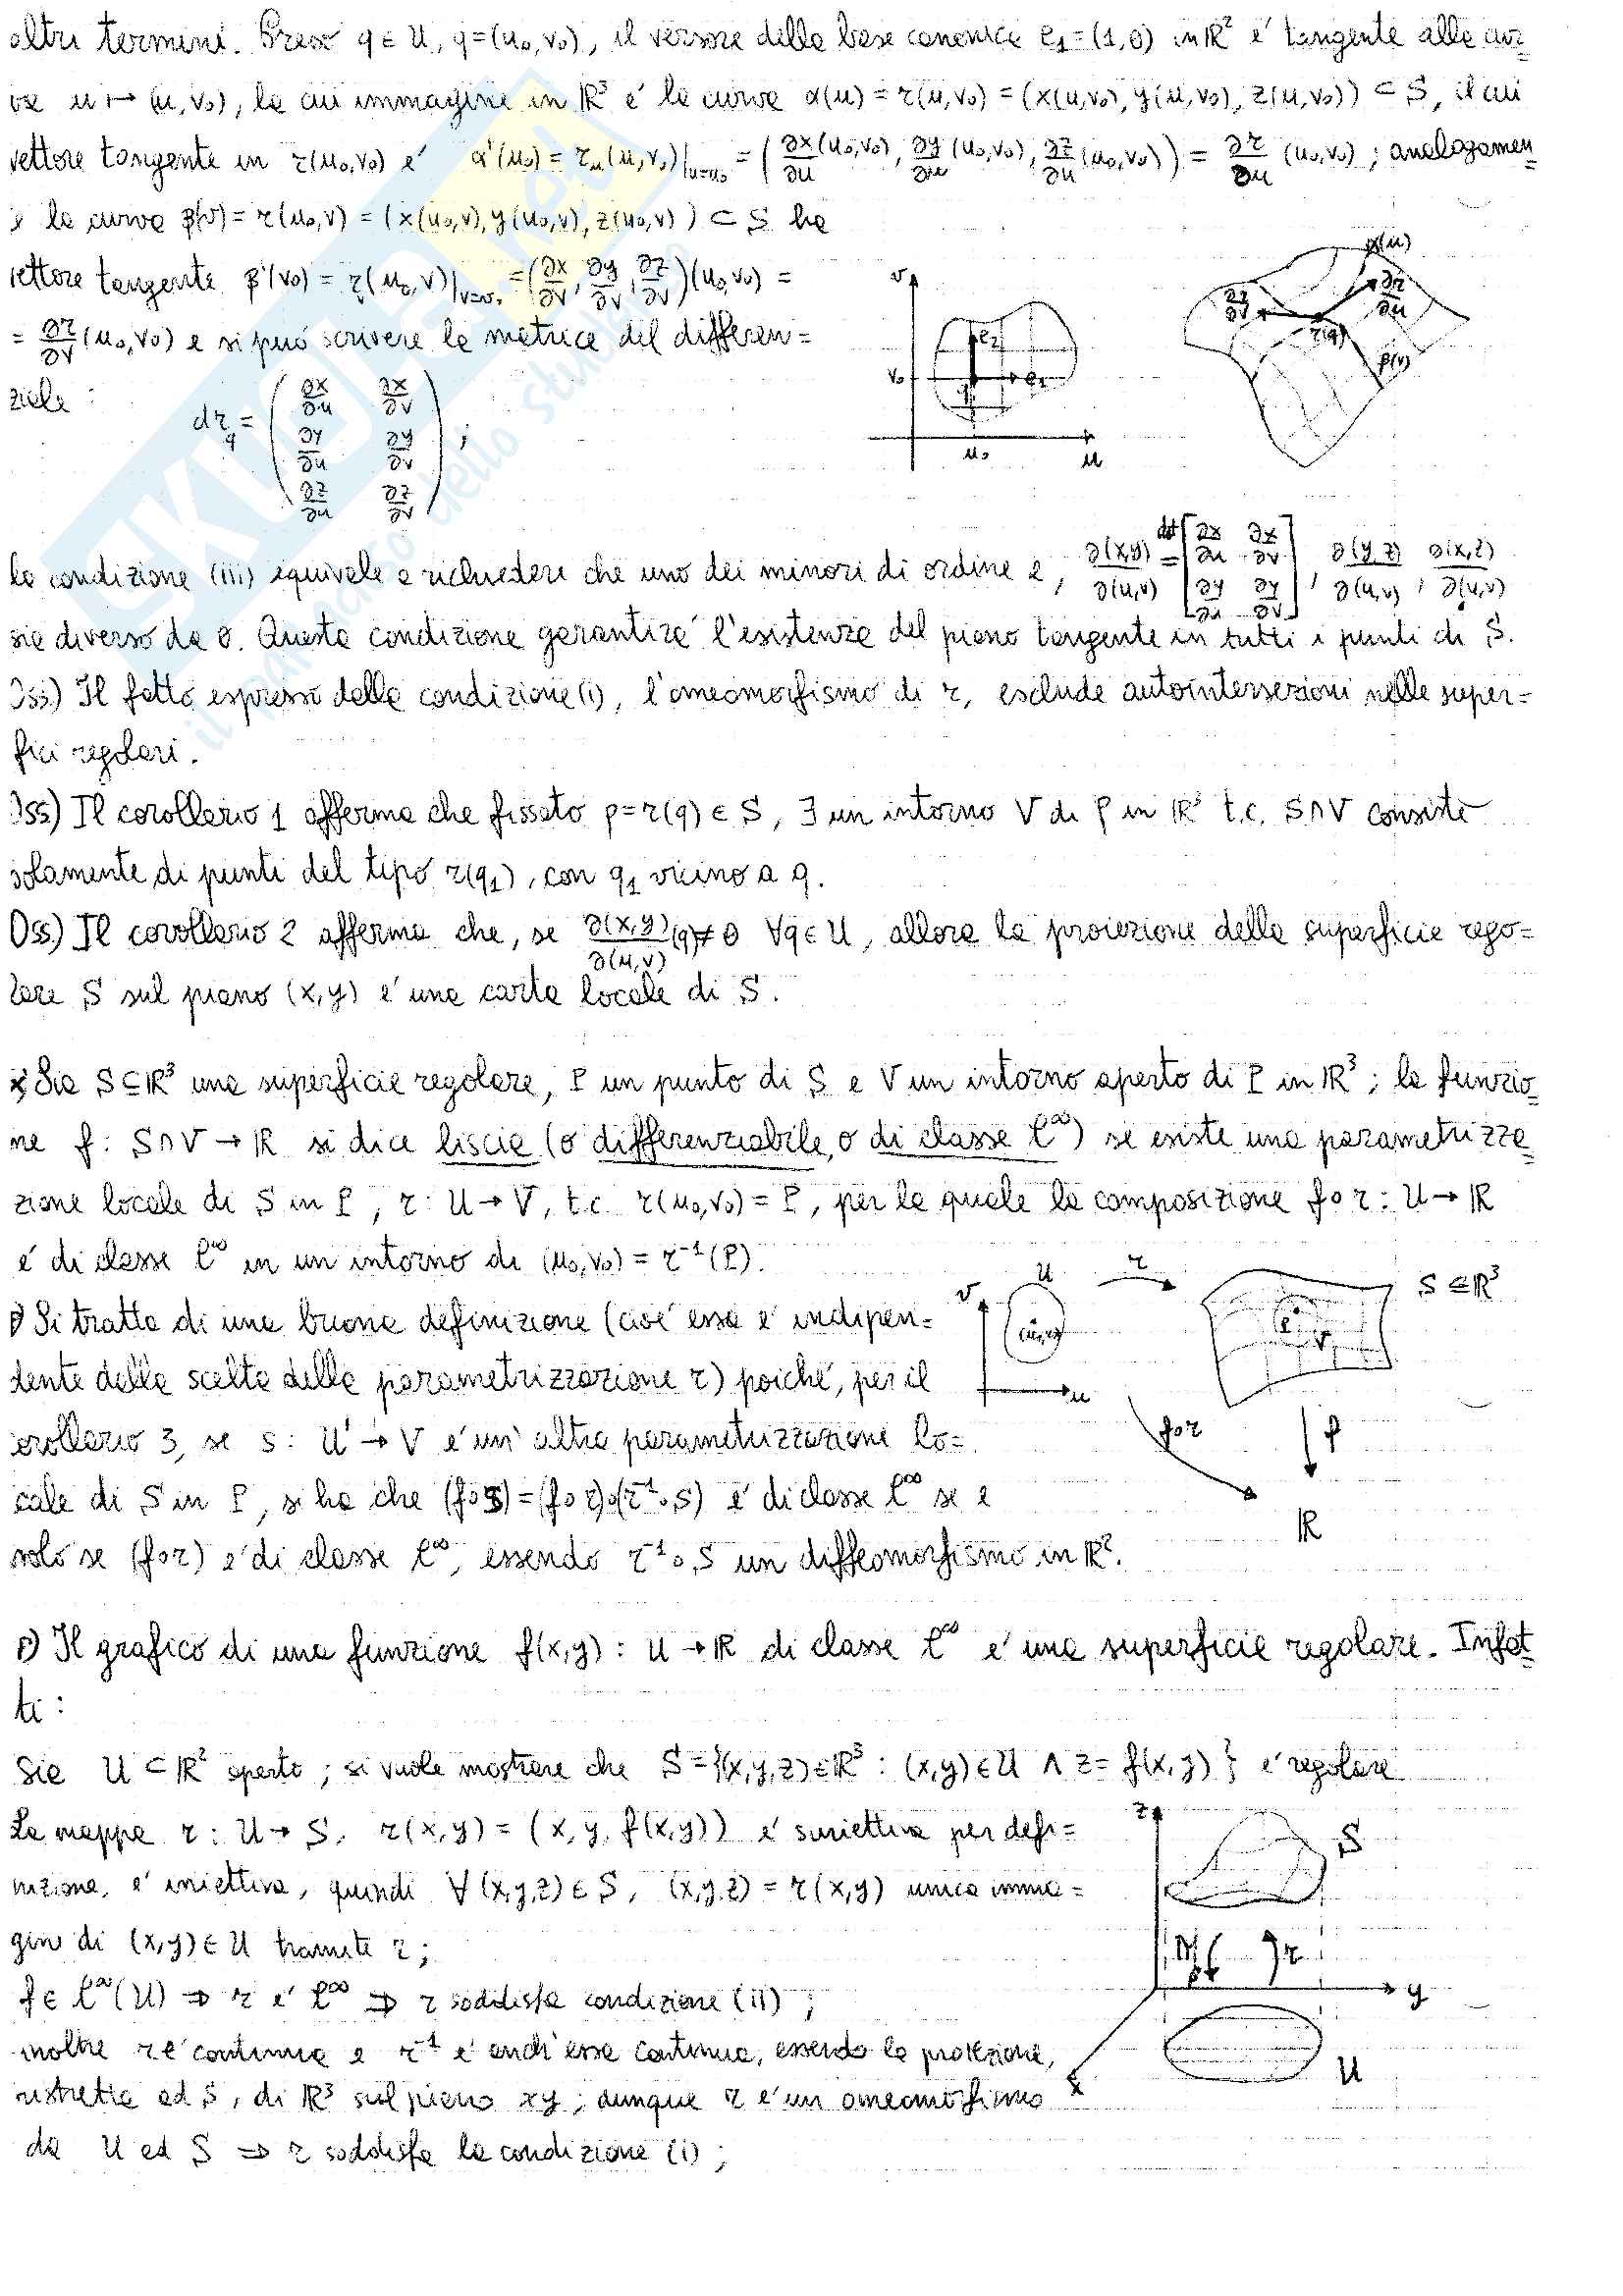 altri termini. Preso q ∈ U, q=(u₀,v₀), il versore della base canonica e₁=(1,0) in ℝ² e' tangente alla cur-
va u ↦ (u,v₀), la cui immagine in ℝ³ e' la curva α(u) = r(u,v₀) = (x(u,v₀), y(u,v₀), z(u,v₀)) ⊂ S, il cui
vettore tangente in r(u₀,v₀) e' α'(u₀) = r_u(u,v₀)|_{u=u₀} = (∂x/∂u (u₀,v₀), ∂y/∂u (u₀,v₀), ∂z/∂u (u₀,v₀)) = ∂r/∂u (u₀,v₀); analogamen-
e la curva β(v) = r(u₀,v) = (x(u₀,v), y(u₀,v), z(u₀,v)) ⊂ S ha
vettore tangente β'(v₀) = r_v(u₀,v)|_{v=v₀} = (∂x/∂v, ∂y/∂v, ∂z/∂v)(u₀,v₀) =
= ∂r/∂v (u₀,v₀) e si può scrivere la matrice del differen=
ziale :
dr_q = ( ∂x/∂u ∂x/∂v
∂y/∂u ∂y/∂v
∂z/∂u ∂z/∂v ) ;
v
e₂
v₀
e₁
u₀
u
α(u)
∂r/∂v
∂r/∂u
r(q)
β(v)
la condizione (iii) equivale a richiedere che uno dei minori di ordine 2, ∂(x,y)/∂(u,v) = det[∂x/∂u ∂x/∂v ∂y/∂u ∂y/∂v], ∂(y,z)/∂(u,v), ∂(x,z)/∂(u,v)
sia diverso da 0. Questa condizione garantira' l'esistenza del piano tangente in tutti i punti di S.
Oss.) Il fatto espresso dalla condizione (i), l'omeomorfismo di r, esclude autointersezioni nelle super=
fici regolari.
Oss) Il corollario 1 afferma che fissato p=r(q) ∈ S, ∃ un intorno V di P in ℝ³ t.c. S∩V consiste
solamente di punti del tipo r(q₁), con q₁ vicino a q.
Oss.) Il corollario 2 afferma che, se ∂(x,y)/∂(u,v) (q) ≠ 0 ∀q ∈ U, allora la proiezione della superficie rego=
lare S sul piano (x,y) e' una carta locale di S.
Sia S ⊆ ℝ³ una superficie regolare, P un punto di S e V un intorno aperto di P in ℝ³; la funzio=
ne f: S∩V → ℝ si dice liscia (o differenziabile, o di classe C^∞) se esiste una parametrizza=
zione locale di S in P, r: U → V, t.c. r(u₀,v₀) = P, per la quale la composizione f∘r: U → ℝ
e' di classe C^∞ in un intorno di (u₀,v₀) = r⁻¹(P).
Si tratta di una buona definizione (cioe' essa e' indipen=
dente dalla scelta della parametrizzazione r) poiche', per il
corollario 3, se s: U' → V e' un' altra parametrizzazione lo=
cale di S in P, si ha che (f∘s) = (f∘r)∘(r⁻¹∘s) e' di classe C^∞ se e
solo se (f∘r) e' di classe C^∞, essendo r⁻¹∘s un diffeomorfismo in ℝ².
v
U
r
S ⊆ ℝ³
(u₀,v₀)
P
V
u
f∘r
f
ℝ
Il grafico di una funzione f(x,y): U → ℝ di classe C^∞ e' una superficie regolare. Infat=
ti :
Sia U ⊂ ℝ² aperto; si vuole mostrare che S = {(x,y,z) ∈ ℝ³ : (x,y) ∈ U ∧ z = f(x,y)} e' regolare
La mappa r: U → S, r(x,y) = (x, y, f(x,y)) e' suriettiva per defi=
nizione, e' iniettiva, quindi ∀ (x,y,z) ∈ S, (x,y,z) = r(x,y) unica imma=
gine di (x,y) ∈ U tramite r;
f ∈ C^∞(U) ⇒ r e' C^∞ ⇒ r soddisfa condizione (ii) ;
inoltre r e' continua e r⁻¹ e' anch'essa continua, essendo la proiezione,
ristretta ad S, di ℝ³ sul piano xy; dunque r e' un omeomorfismo
da U ad S ⇒ r soddisfa la condizione (i) ;
z
S
r
y
x
U